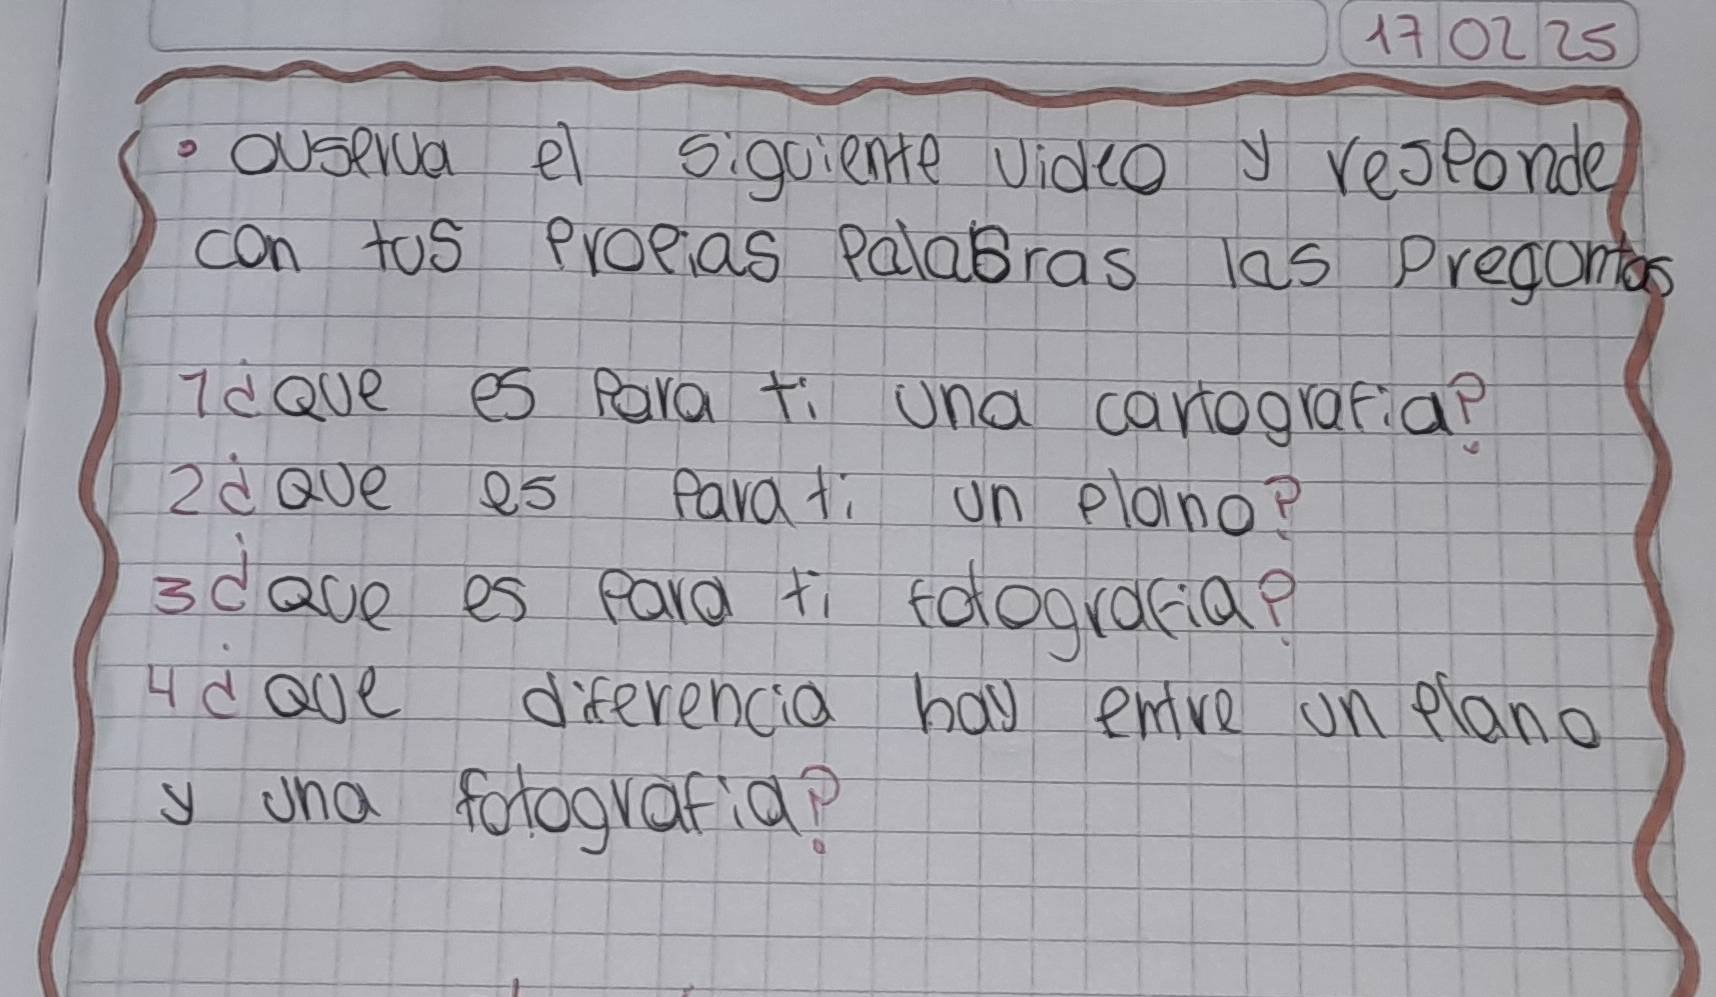 17 02 25
• ouserva el siguiente video y responde
con tus propias palabras las pregontas
1¿que es para ti una cartografia?
2¿que es para ti un plano?
3¿que es para ti fotografia?
4¿que diferencia hay entre un plano
y una fotografia?